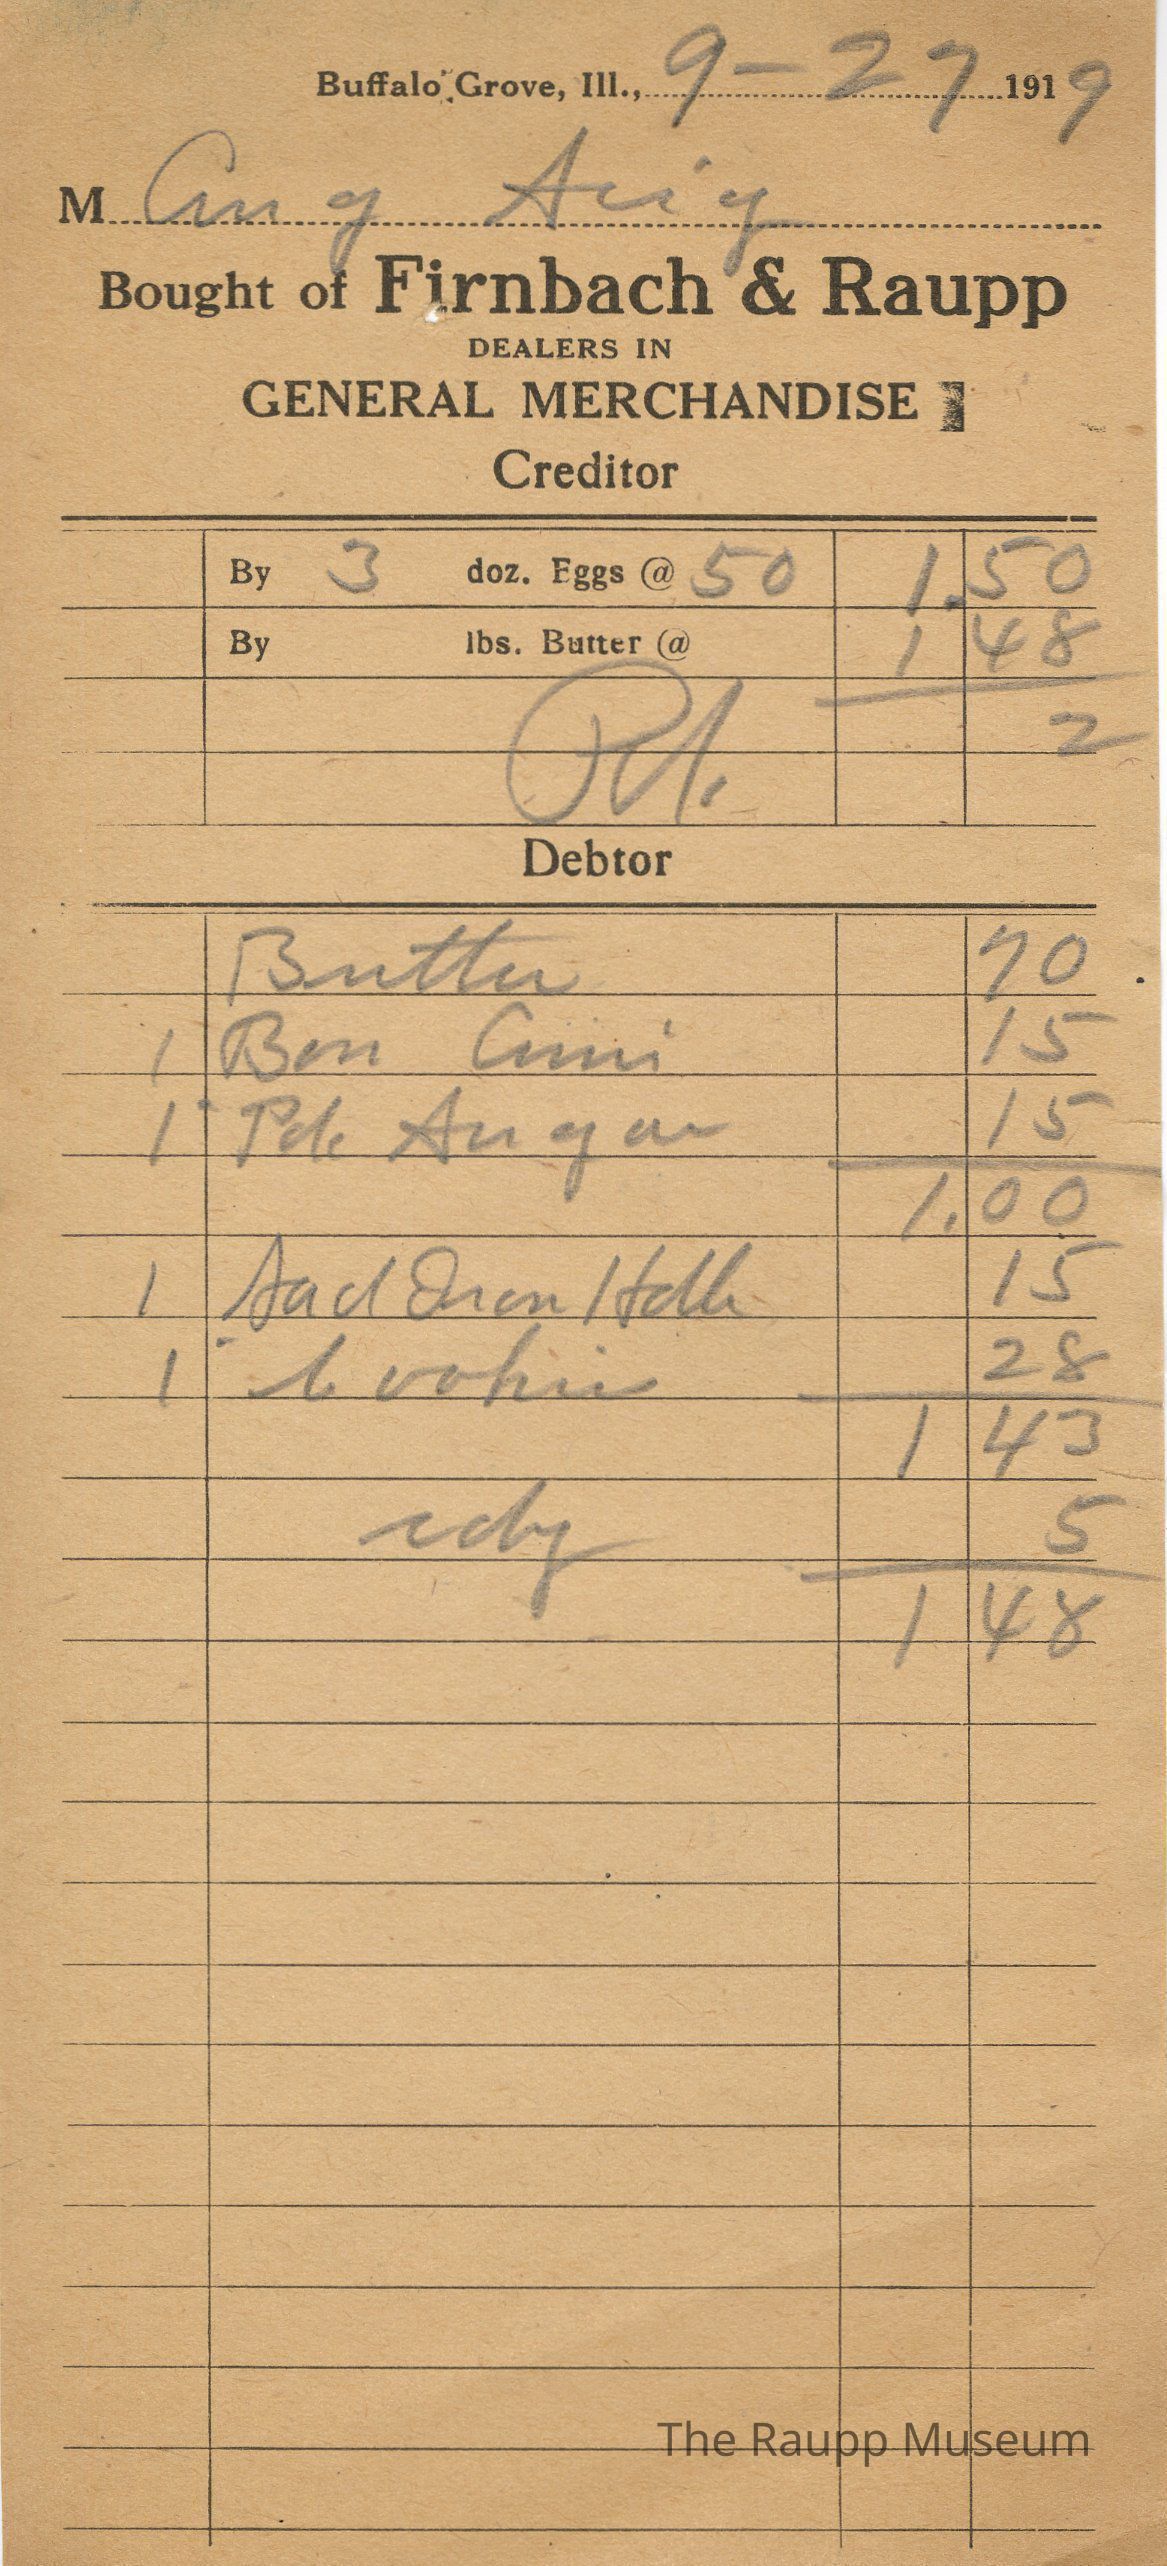 Buffalo Grove, Ill., 9-27 1919
M Aug
Bought of Firnbach & Raupp
DEALERS IN
GENERAL MERCHANDISE
Creditor
By 3 doz. Eggs @ 50 1.50
By lbs. Butter @ 1 48
2
Pd.
Debtor
Butter 70
1 Bon Ami 15
1 Pk Sugar 15
1.00
1 Sad Iron Hdle 15
1 Cookies 28
1 43
5
1 48
The Raupp Museum